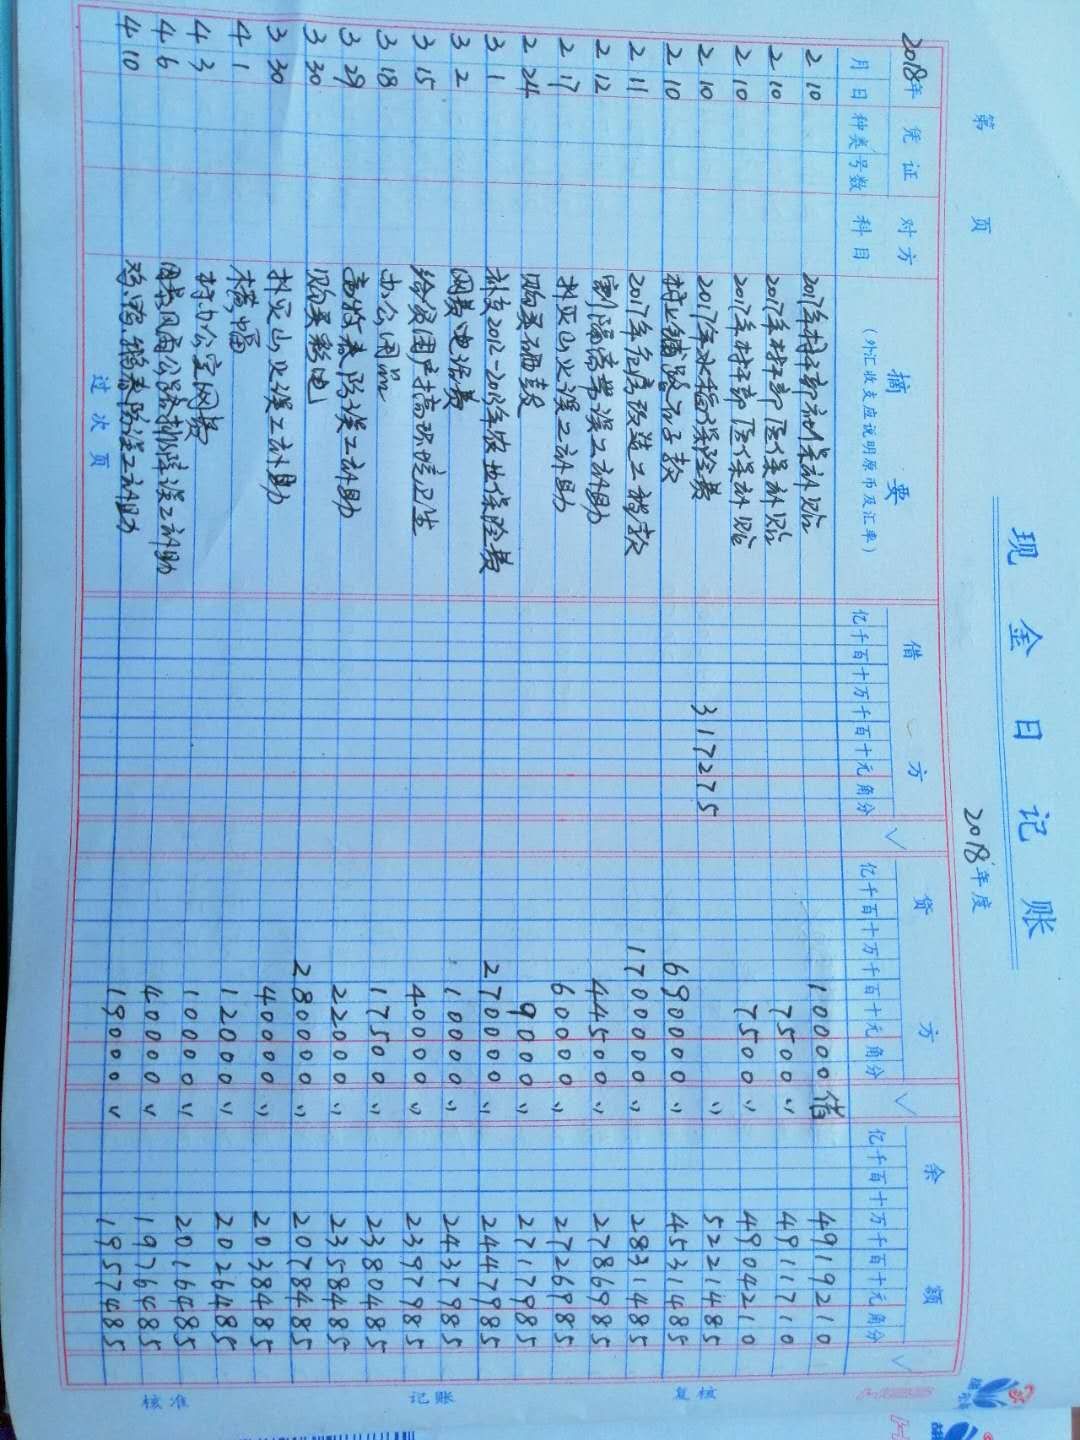 现金日记账
2018年度
第 页
2018年 凭证 对方 摘要 借方 √ 贷方 √ 余额 √
月 日 种类 号数 科目 (外汇收支应说明原币及汇率) 亿千百十万千百十元角分 亿千百十万千百十元角分 亿千百十万千百十元角分
2 10 2017年村干部社保补贴 10000 借 4919210
2 10 2017年村干部医保补贴 7500 〃 4911710
2 10 2017年村干部医保补贴 7500 〃 4904210
2 10 2017年水稻保险费 317275 〃 5221485
2 10 690000 〃 4531485
2 11 2017年危房改造工程款 1700000 〃 2831485
2 12 割隔离带误工补助 44500 〃 2786985
2 17 扑灭山火误工补助 60000 〃 2726985
2 24 9000 〃 2717985
3 1 补交2012-2018年农业保险费 270000 〃 2447985
3 2 网费电话费 10000 〃 2437985
3 15 给贫困户搞环境卫生 40000 〃 2397985
3 18 办公用品 17500 〃 2380485
3 29 防误工补助 22000 〃 2358485
3 30 购买彩电 280000 〃 2078485
3 30 扑灭山火误工补助 40000 〃 2038485
4 1 横幅 12000 〃 2026485
4 3 村办公室网费 10000 〃 2016485
4 6 风雨公路排障误工补助 40000 〃 1976485
4 10 鸡、鸭、鹅春防误工补助 19000 〃 1957485
过次页
核准 记账 复核